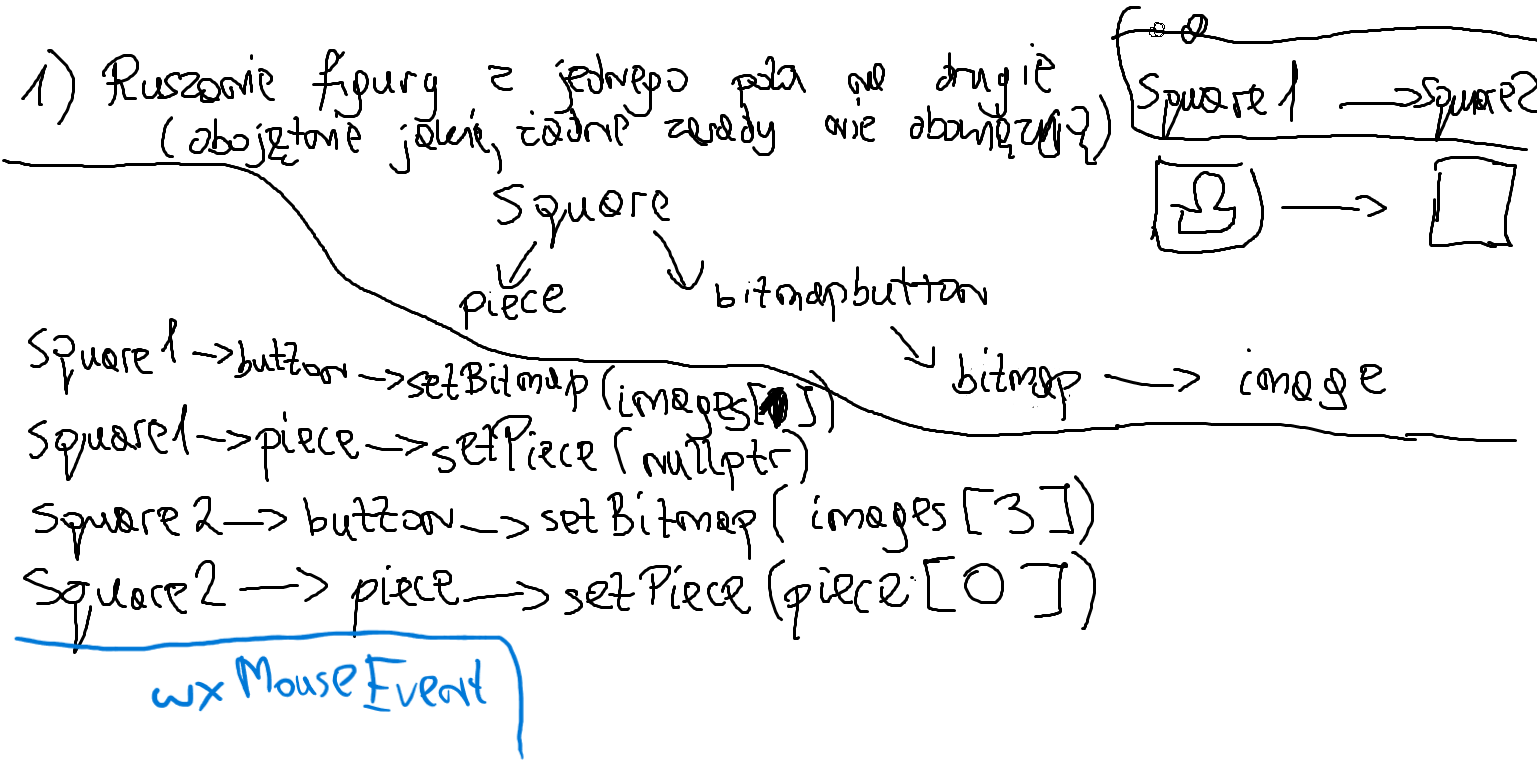 1) Ruszanie figury z jednego pola na drugie
(obojętnie jakie, żadne zasady nie obowiązują)
Square1 → square2
Square
piece
bitmapbutton
bitmap → image
Square1 → button → setBitmap(images[])
square1 → piece → setPiece(nullptr)
square2 → button → setBitmap(images[3])
Square2 → piece → setPiece(piece[0])
wxMouseEvent